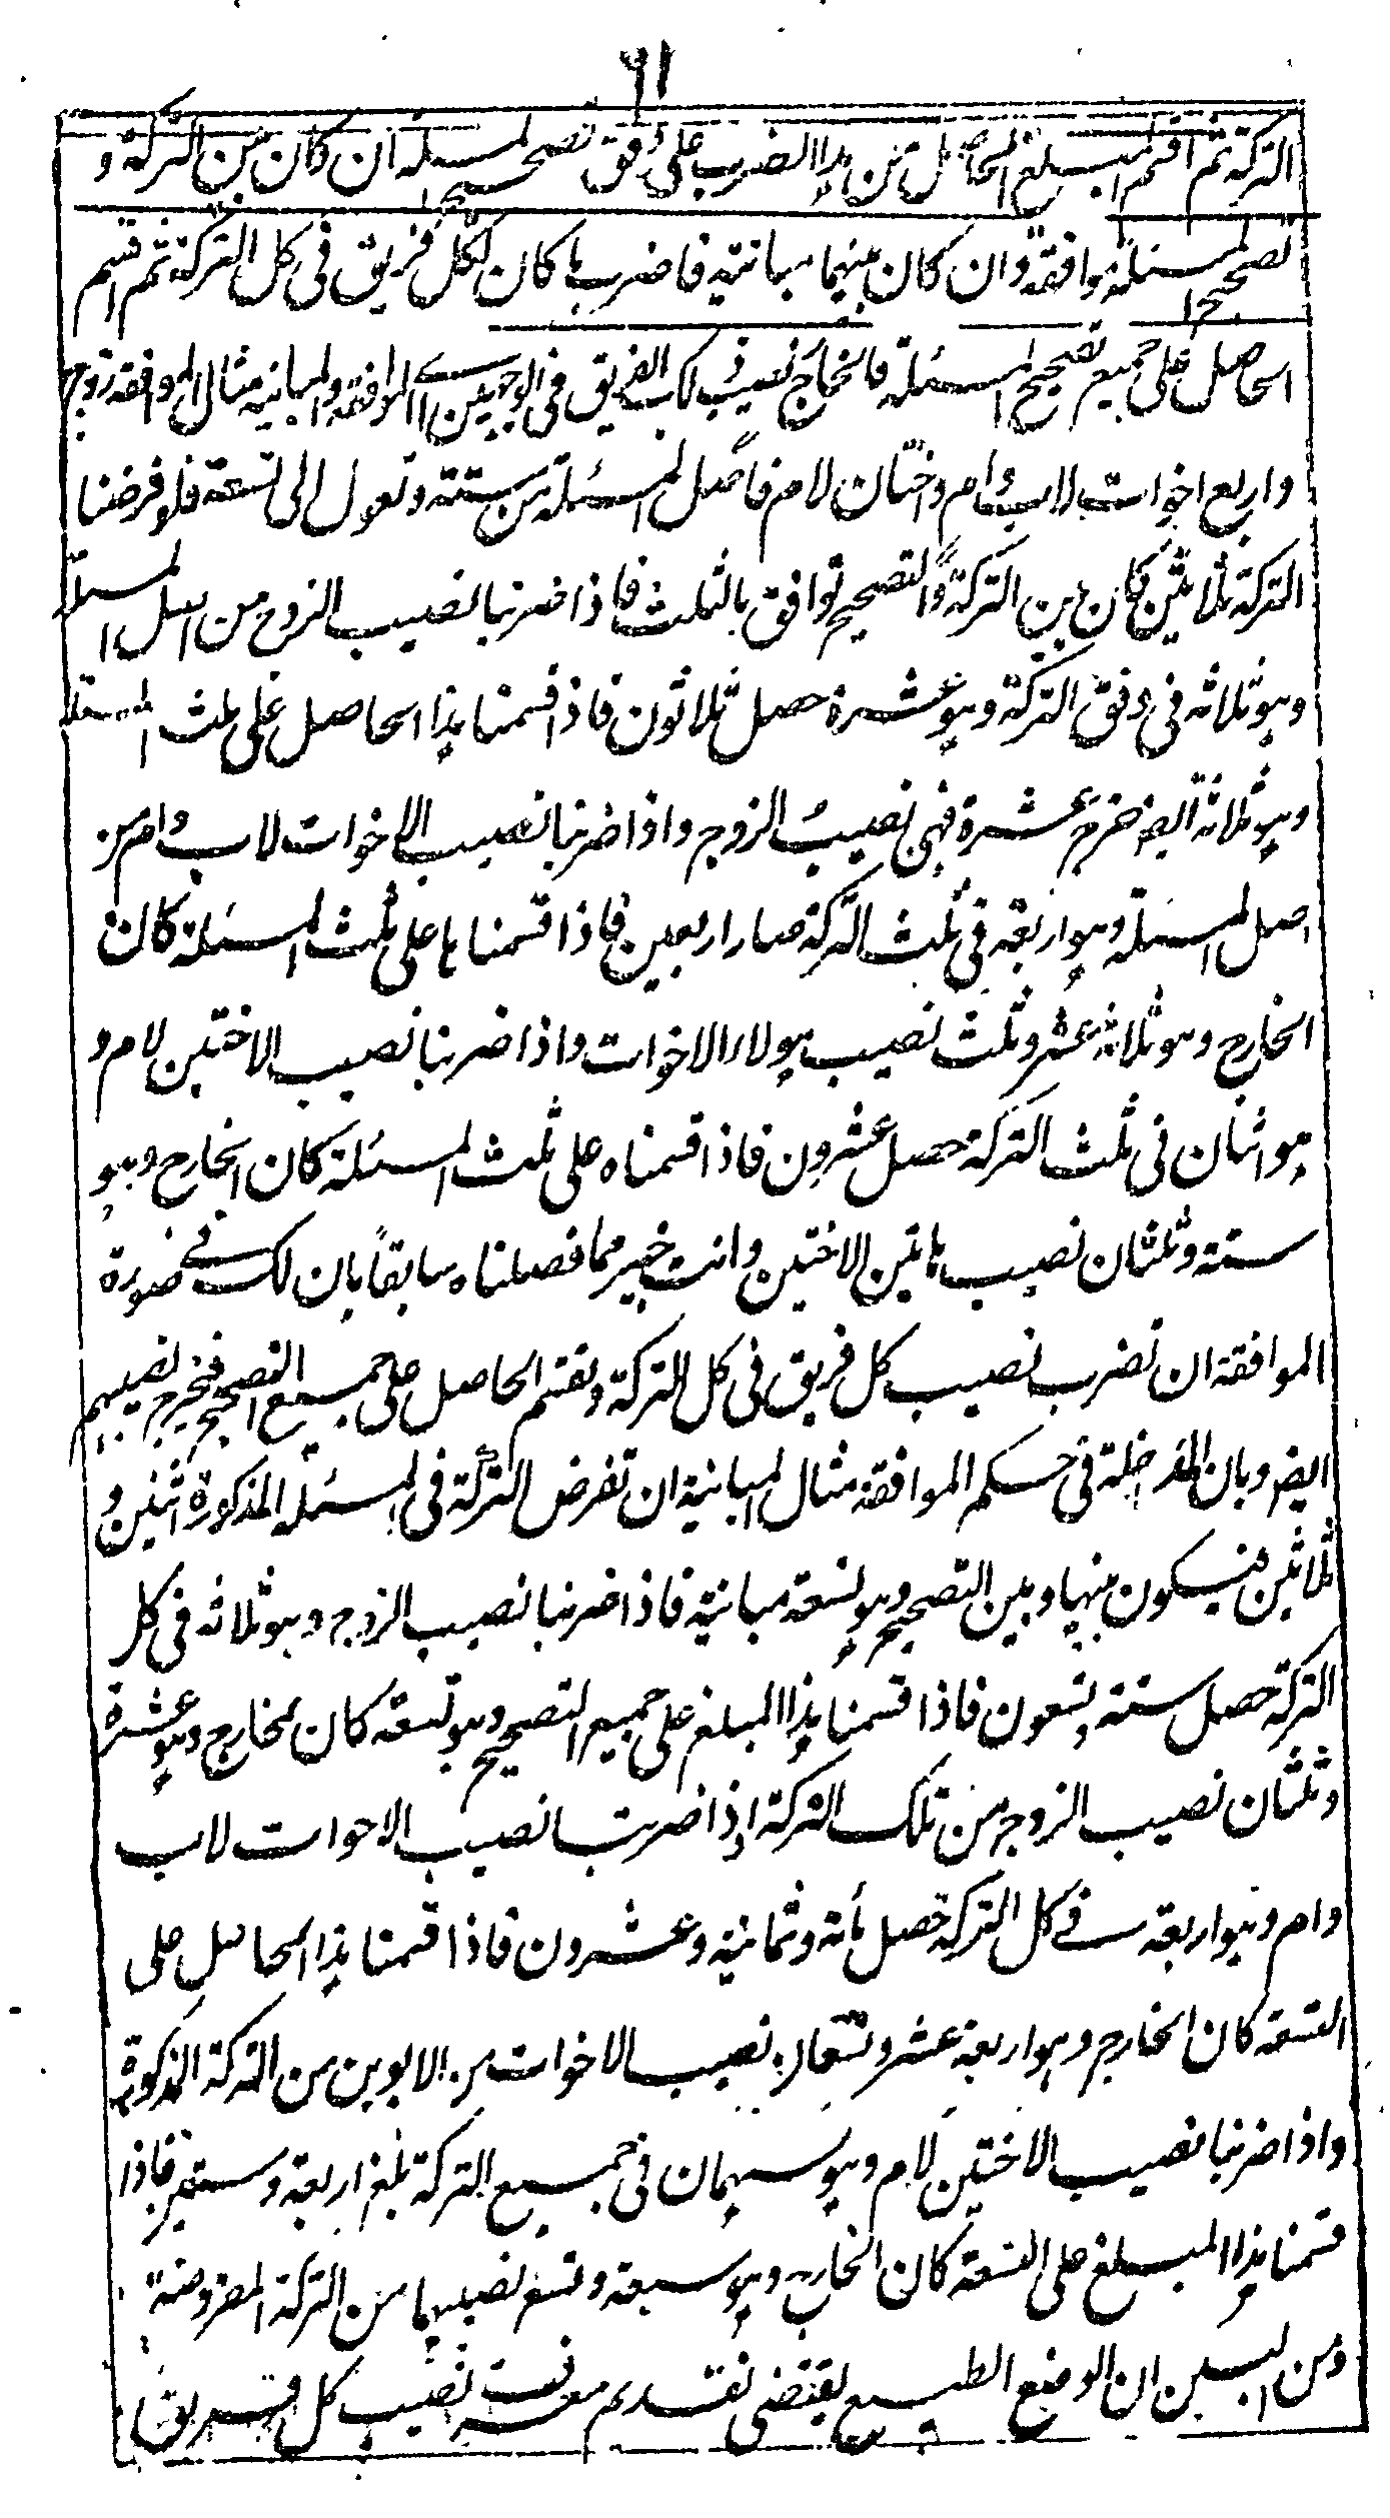 ٦١
التركة ثم اقسم المبلغ الحاصل من هذا الضرب على وفق تصحيح المسئلة ان كان بين التركة و
تصحيح المسئلة موافقة وان كان بينهما مباينة فاضرب ما كان لكل فريق فى كل التركة ثم اقسم
الحاصل على جميع تصحيح المسئلة فالخارج نصيب ذلك الفريق فى الوجهين اى الموافقة والمباينة مثال الموافقة زوج
واربع اخوات لاب وام واختان لام فاصل المسئلة من ستة وتعول الى تسعة فلو فرضنا
التركة ثلاثين كان بين التركة والتصحيح توافق بالثلث فاذا ضربنا نصيب الزوج من اصل المسئلة
وهو ثلاثة فى وفق التركة وهو عشرة حصل ثلاثون فاذا قسمنا هذا الحاصل على ثلث المسئلة
وهو ثلاثة ايضا خرج عشرة فهى نصيب الزوج واذا ضربنا نصيب الاخوات لاب وام من
اصل المسئلة وهو اربعة فى ثلث التركة صار اربعين فاذا قسمناها على ثلث المسئلة كان
الخارج وهو ثلاثة عشر وثلث نصيب هولاء الاخوات واذا ضربنا نصيب الاختين لام و
هو اثنان فى ثلث التركة حصل عشرون فاذا قسمناه على ثلث المسئلة كان الخارج وهو
ستة وثلثان نصيب هاتين الاختين وانت خبير مما فصلناه سابقاً بان لك فى صورة
الموافقة ان تضرب نصيب كل فريق فى كل التركة وتقسم الحاصل على جميع التصحيح فيخرج نصيبهم
ايضا وبان المداخلة فى حكم الموافقة مثال المباينة ان تفرض التركة فى المسئلة المذكورة اثنين و
ثلاثين فيكون بينها وبين التصحيح وهو تسعة مباينة فاذا ضربنا نصيب الزوج وهو ثلاثة فى كل
التركة حصل ستة وتسعون فاذا قسمنا هذا المبلغ على جميع التصحيح وهو تسعة كان الخارج وهو عشرة
وثلثان نصيب الزوج من تلك التركة اذا ضربنا نصيب الاخوات لاب
وام وهو اربعة فى كل التركة حصل مأة وثمانية وعشرون فاذا قسمنا هذا الحاصل على
التسعة كان الخارج وهو اربعة عشر وتسعان نصيب الاخوات من الابوين من التركة المذكورة
واذا ضربنا نصيب الاختين لام وهو سهمان فى جميع التركة بلغ اربعة وستين فاذا
قسمنا هذا المبلغ على التسعة كان الخارج وهو سبعة وتسع نصيبهما من التركة المفروضة
ومن البين ان الوضع الطبيعى يقتضى تقديم معرفة نصيب كل فريق